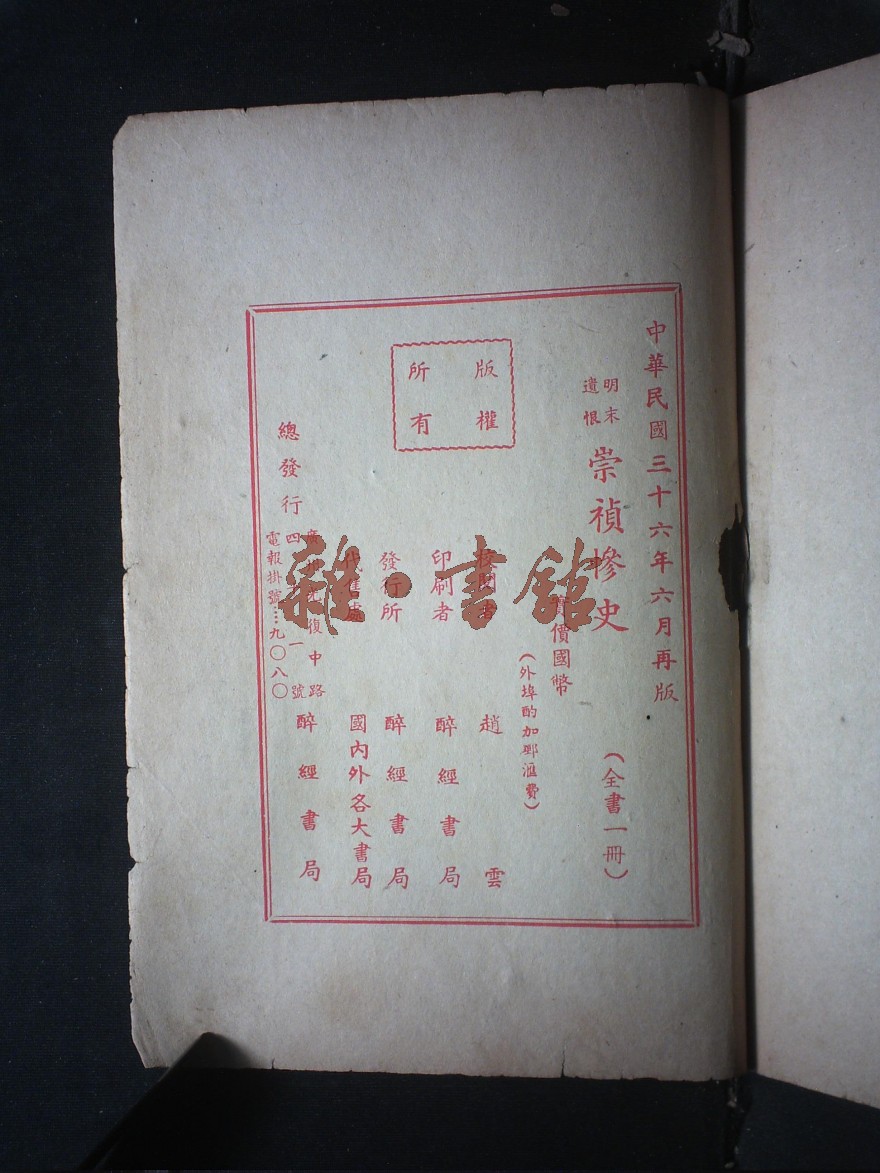 中華民國三十六年六月再版
明末
遺恨
崇禎慘史
(全書一冊)
價國幣
(外埠酌加郵滙費)
趙雲
印刷者
醉經書局
發行所
醉經書局
國內外各大書局
版權
所有
總發行
復中路
四
一號
電報掛號……九〇八〇
醉經書局
雜·書館